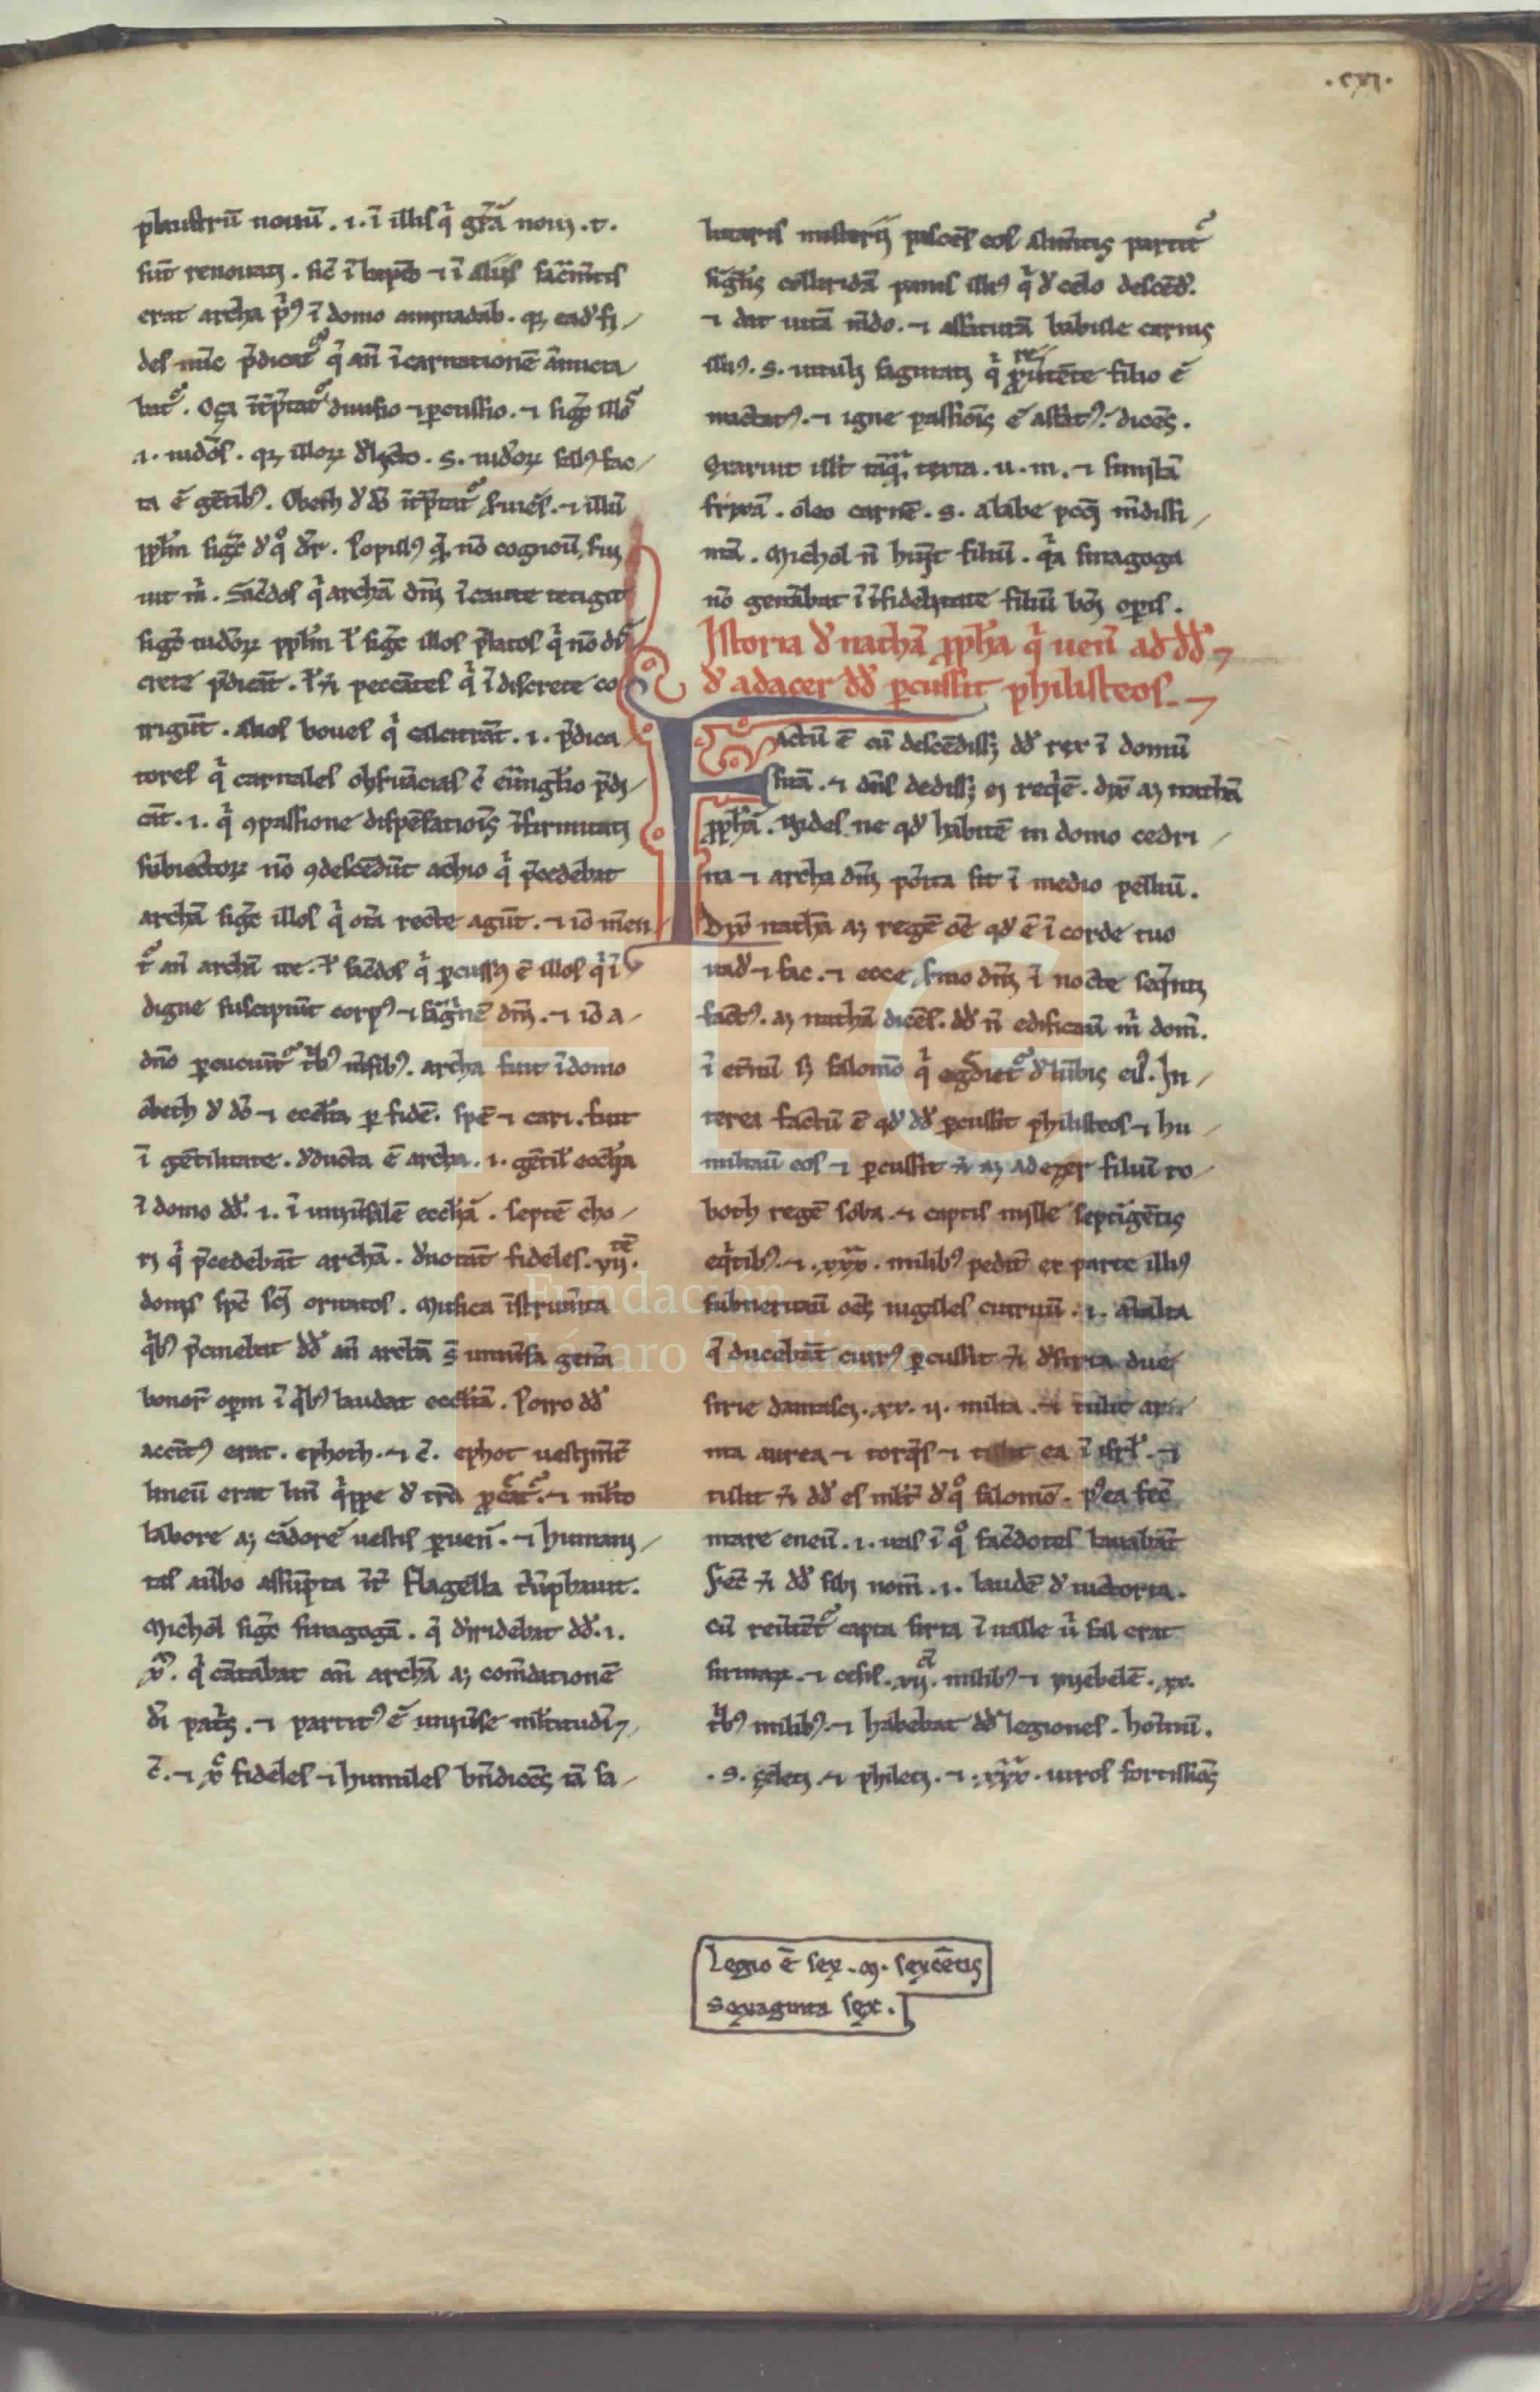 .cxi.
plaustrū nouū . i . ī illis q̇ grām noui . t .
sūt renouati . sic̄ ī bap̄to ⁊ ī aliis sac̄mtis
erat archa p̄ꝰ ī domo aminadab . qꝛ ead̄ fi
des nūc p̄dicat᷑ q̄ an̄ īcarnationē ānūcia
bat᷑ . Oça īt̄p̄tat᷑ diuisio ⁊ ꝑcussio . ⁊ fiḡt illos
i . iudeos . qꝛ illoꝝ . s . iudeoꝝ salꝰ fac
ta ē gētibꝰ . Obeth d̄ dō īt̄p̄tat᷑ ẜuiēs . ⁊ illū
pp̄lm fiḡt d̄ q° d̄r . Popul̄ꝰ q̄ nō cognoui , ẜui
uit m̄ . Sac̄dos q̇ archā dn̄i īcaute tetigit
fiḡt iudeoꝝ pp̄lm ł fiḡt illos p̄latos q̇ nō dis
crete p̄dicāt . peccātes q̇ īdiscrete co
rrigūt . Alios boues q̇ calcitrāt . i . p̄dica
tores q̇ carnales obẜuācias eūangl̄io p̄di
cāt . i . q̇ ꝯpassione dispēsatiōis īfirmitati
subiectoꝝ nō ꝯdescēdūt achio q̇ p̄cedebat
archā fiḡt illos q̇ oīa recte agūt . ⁊ iō
an̄ archā ire . ł sac̄dos q̇ ꝑcussꝰ ē illos q̇ ī
digne suscipiūt corpꝰ ⁊ sāgnē dn̄i . ⁊ iō a
dn̄o t̄bꝰ m̄sibꝰ . archa fuit ī domo
obeth d̄ dō ⁊ eccl̄ia ꝑ fidē . spē ⁊ cari . fuit
ī gētilitate . d̄ducta ē archa . i . gētil̄ eccl̄ia
ī domo dd̄ . i . ī uniūsalē eccl̄iā . septē cho
ri q̇ p̄cedebāt archā . d̄notāt fideles . vii.tē
donis sp̄c sc̄i ornatos . Musica īstrum̄ta
q̄bꝰ p̄cinebat dd̄ an̄ archā s̄ uniūsa gn̄a
bonoꝝ oꝑm ī q̄bꝰ laudat eccl̄iā . Porro dd̄
accītꝰ erat . ephoth . ⁊ c̄ . ephot uestim̄t̄
lineū erat linū q̇ppe d̄ t̄ra p̄creat᷑ . ⁊ ml̄to
labore aꝫ cādorē uestis ꝑueñ . ⁊ humani
tas aūbo assūpta īt̄ flagella t̄ūphauit .
Michol fiḡt sinagogā . q̄ d̄ridebat dd̄ . i .
xp̄m . q̇ cātabat an̄ archā aꝫ com̄dationē
dī pat̄s . ⁊ partitꝰ ē uniūse ml̄titudī
c̄ . ⁊ xp̄c fideles ⁊ humiles bn̄dicēs tā sa
lutaris misterii pascēs eos alim̄tis partit᷑
sigl̄is colliridā panis illiꝰ q̇ d̄ celo descēd̄ .
⁊ dat uitā mūdo . ⁊ assaturā bubule carnis
illiꝰ . s . uituli saginati q̇ reu̅tēte filio ē
mactatꝰ . ⁊ igne passiōis ē assatꝰ . dicēs .
Exaruit . ut . m . ⁊ similā
frixā . oleo carnē . s . a labe pcc̄i mūdissi
mā . Michol n̄ hūit filiū . q̄a sinagoga
nō gen̄abat ī īfidelitate filiū boni oꝑis .
Istoria d̄ nathā pp̄ha q̇ ueñ ad dd̄ ⁊
d̄ adacer dd̄ ꝑcussit philisteos .
Factū ē cū descēdissꝫ dd̄ rex ī domū
suā . ⁊ dn̄s dedissꝫ ei req̄ē . dix̄ aꝫ nathā
pp̄hā . uides ne qd̄ habitē in domo cedri
na ⁊ archa dn̄i pōita sit ī medio pelliū .
Dix̄ nathā aꝫ regē oē qd̄ ē ī corde tuo
uad̄ ⁊ fac . ⁊ ecce ẜmo dn̄i ī nocte seq̄nti
factꝰ . aꝫ nathā dicēs . dd̄ n̄ edificaū m̄ dom̄ .
ī et̄nū sꝫ salomō q̇ egdiet᷑ d̄ lūbis eiꝰ . In
terea factū ē qd̄ dd̄ ꝑcussit philisteos ⁊ hu
miliaū eos ⁊ ꝑcussit aꝫ adezer filiū ro
both regē soba . ⁊ captis mille septīgētis
eq̄tibꝰ . ⁊ . xxx . milibꝰ peditū ex parte illiꝰ
subneruaū oēs iugales curruū . i . aīalia
q̄ ducebāt currꝰ ꝑcussit d̄ siria due
sirie damasci . xx . ii . milia . ⁊ tulit ar
ma aurea ⁊ torq̄s ⁊ tulit ea ī isrl̄ . ⁊
tulit dd̄ es ml̄t̄ d̄ q° salomō . pꝰea fec̄
mare eneū . i . uas ī q° sac̄dotes lauabāt
Fec̄ dd̄ sibi nom̄ . i . laudē d̄ uictoria .
cū reūtēt᷑ capta siria ī ualle ū sal erat
⁊ cesis . xii . milibꝰ ⁊
t̄bꝰ milibꝰ . ⁊ habebat dd̄ legiones . hoīnū .
. s . celeti ⁊ phileti . ⁊ . xxx . uiros fortissiōs
Legio ē sex . m . sexcētis
sexaginta sex .
Fundación
Lázaro Galdiano
FLG